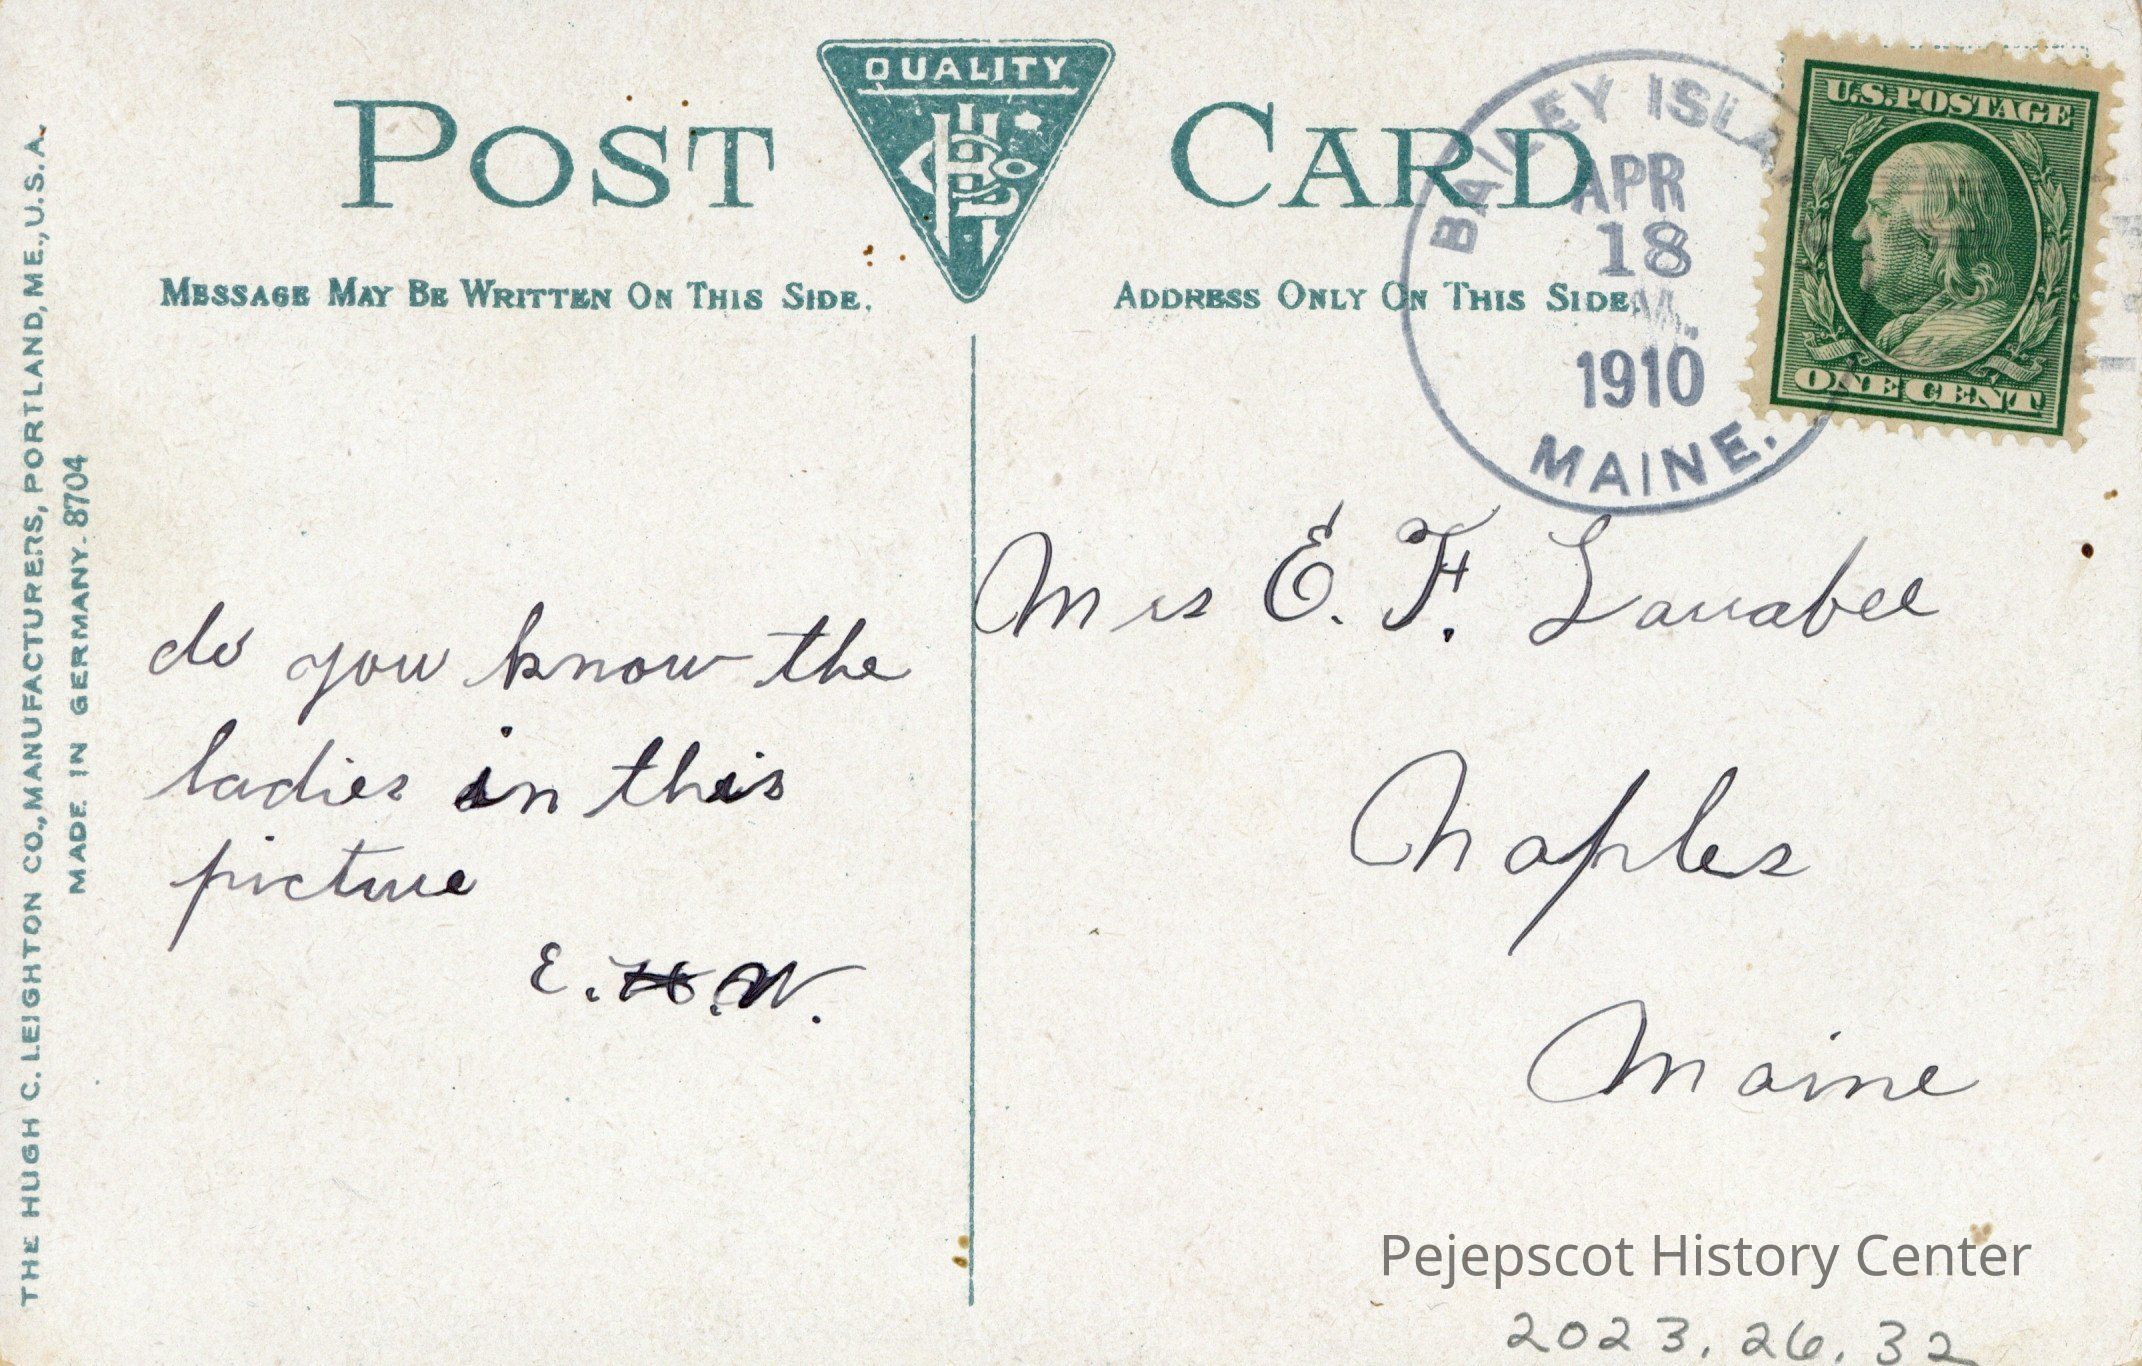 POST CARD
QUALITY
MESSAGE MAY BE WRITTEN ON THIS SIDE.
ADDRESS ONLY ON THIS SIDE.
BAILEY ISLA
APR
18
M.
1910
MAINE.
U.S. POSTAGE
ONE CENT
THE HUGH C. LEIGHTON CO., MANUFACTURERS, PORTLAND, ME., U.S.A.
MADE IN GERMANY. 8704
do you know the
ladies in this
picture
E. H. W.
Mrs E. F. Larrabee
Naples
Maine
Pejepscot History Center
2023.26.32